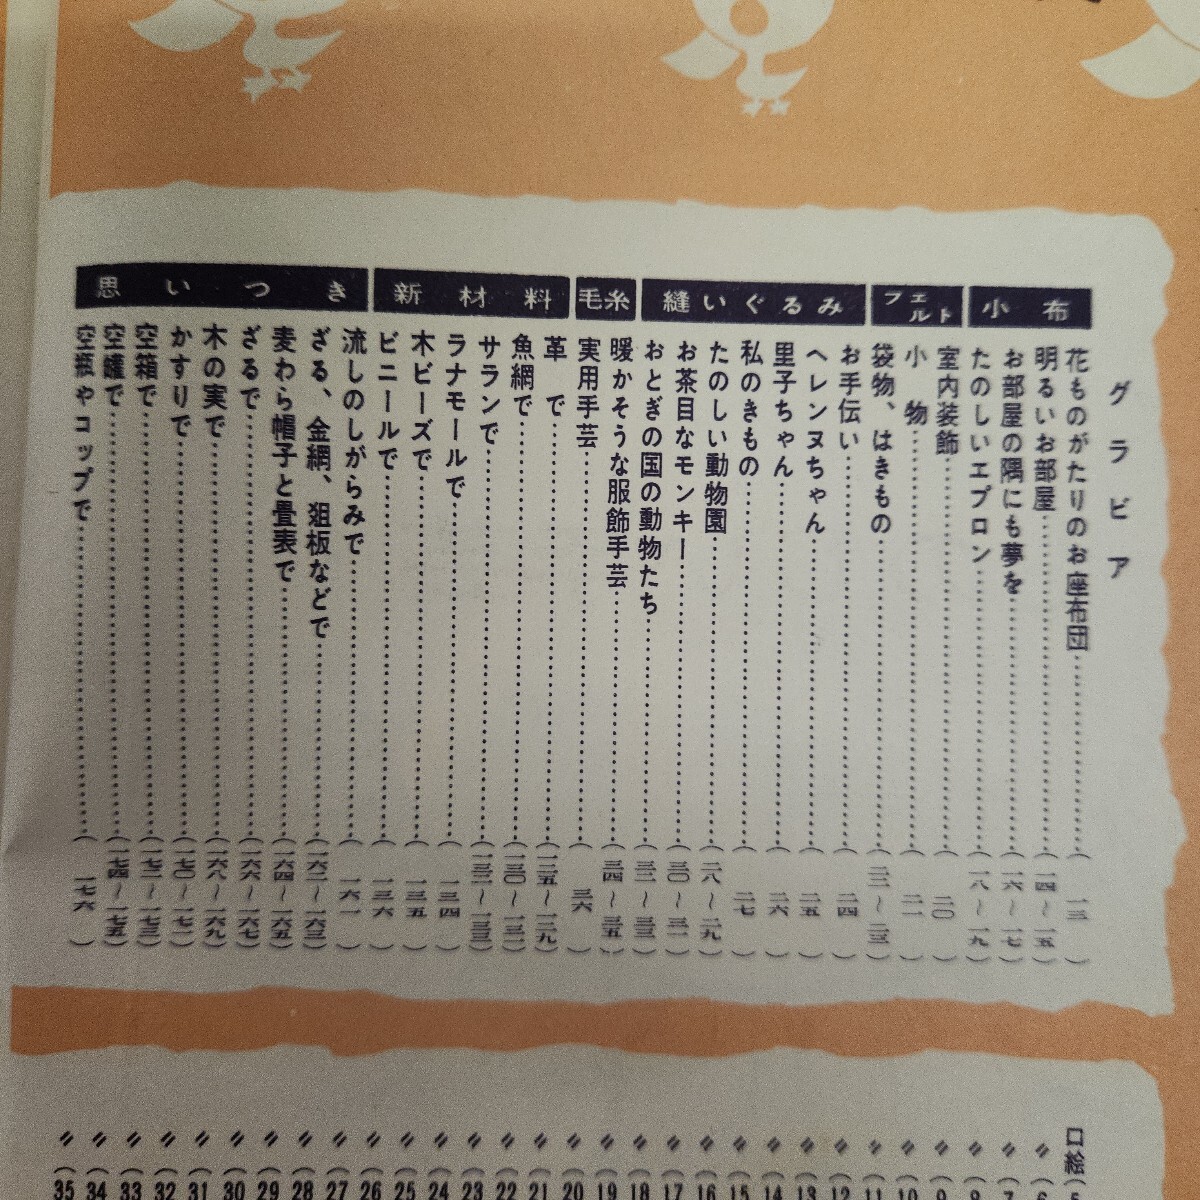 グラビア
小布
花ものがたりのお座布団……（一三）
明るいお部屋……（一四～一五）
お部屋の隅にも夢を……（一六～一七）
たのしいエプロン……（一八～一九）
フェルト
室内装飾……（二〇）
小物……（二一）
袋物、はきもの……（二二～二三）
縫いぐるみ
お手伝い……（二四）
ヘレンヌちゃん……（二五）
里子ちゃん……（二六）
私のきもの……（二七）
たのしい動物園……（二八～二九）
お茶目なモンキー……（三〇～三一）
おとぎの国の動物たち……（三二～三三）
毛糸
暖かそうな服飾手芸……（三四～三五）
実用手芸……（三六）
新材料
革で……（一二五～一二九）
魚網で……（一三〇～一三一）
サランで……（一三二～一三三）
ラナモールで……（一三四）
木ビーズで……（一三五）
ビニールで……（一三六）
思いつき
流しのしがらみで……（一六一）
ざる、金網、狙板などで……（一六二～一六三）
麦わら帽子と畳表で……（一六四～一六五）
ざるで……（一六六～一六七）
木の実で……（一六八～一六九）
かすりで……（一七〇～一七一）
空箱で……（一七二～一七三）
空罐で……（一七四～一七五）
空瓶やコップで……（一七六）
口絵（
〃（
〃（7
〃（8
〃（9
〃（10
〃（11
〃（12
〃（13
〃（14
〃（15
〃（16
〃（17
〃（18
〃（19
〃（20
〃（21
〃（22
〃（23
〃（24
〃（25
〃（26
〃（27
〃（28
〃（29
〃（30
〃（31
〃（32
〃（33
〃（34
〃（35